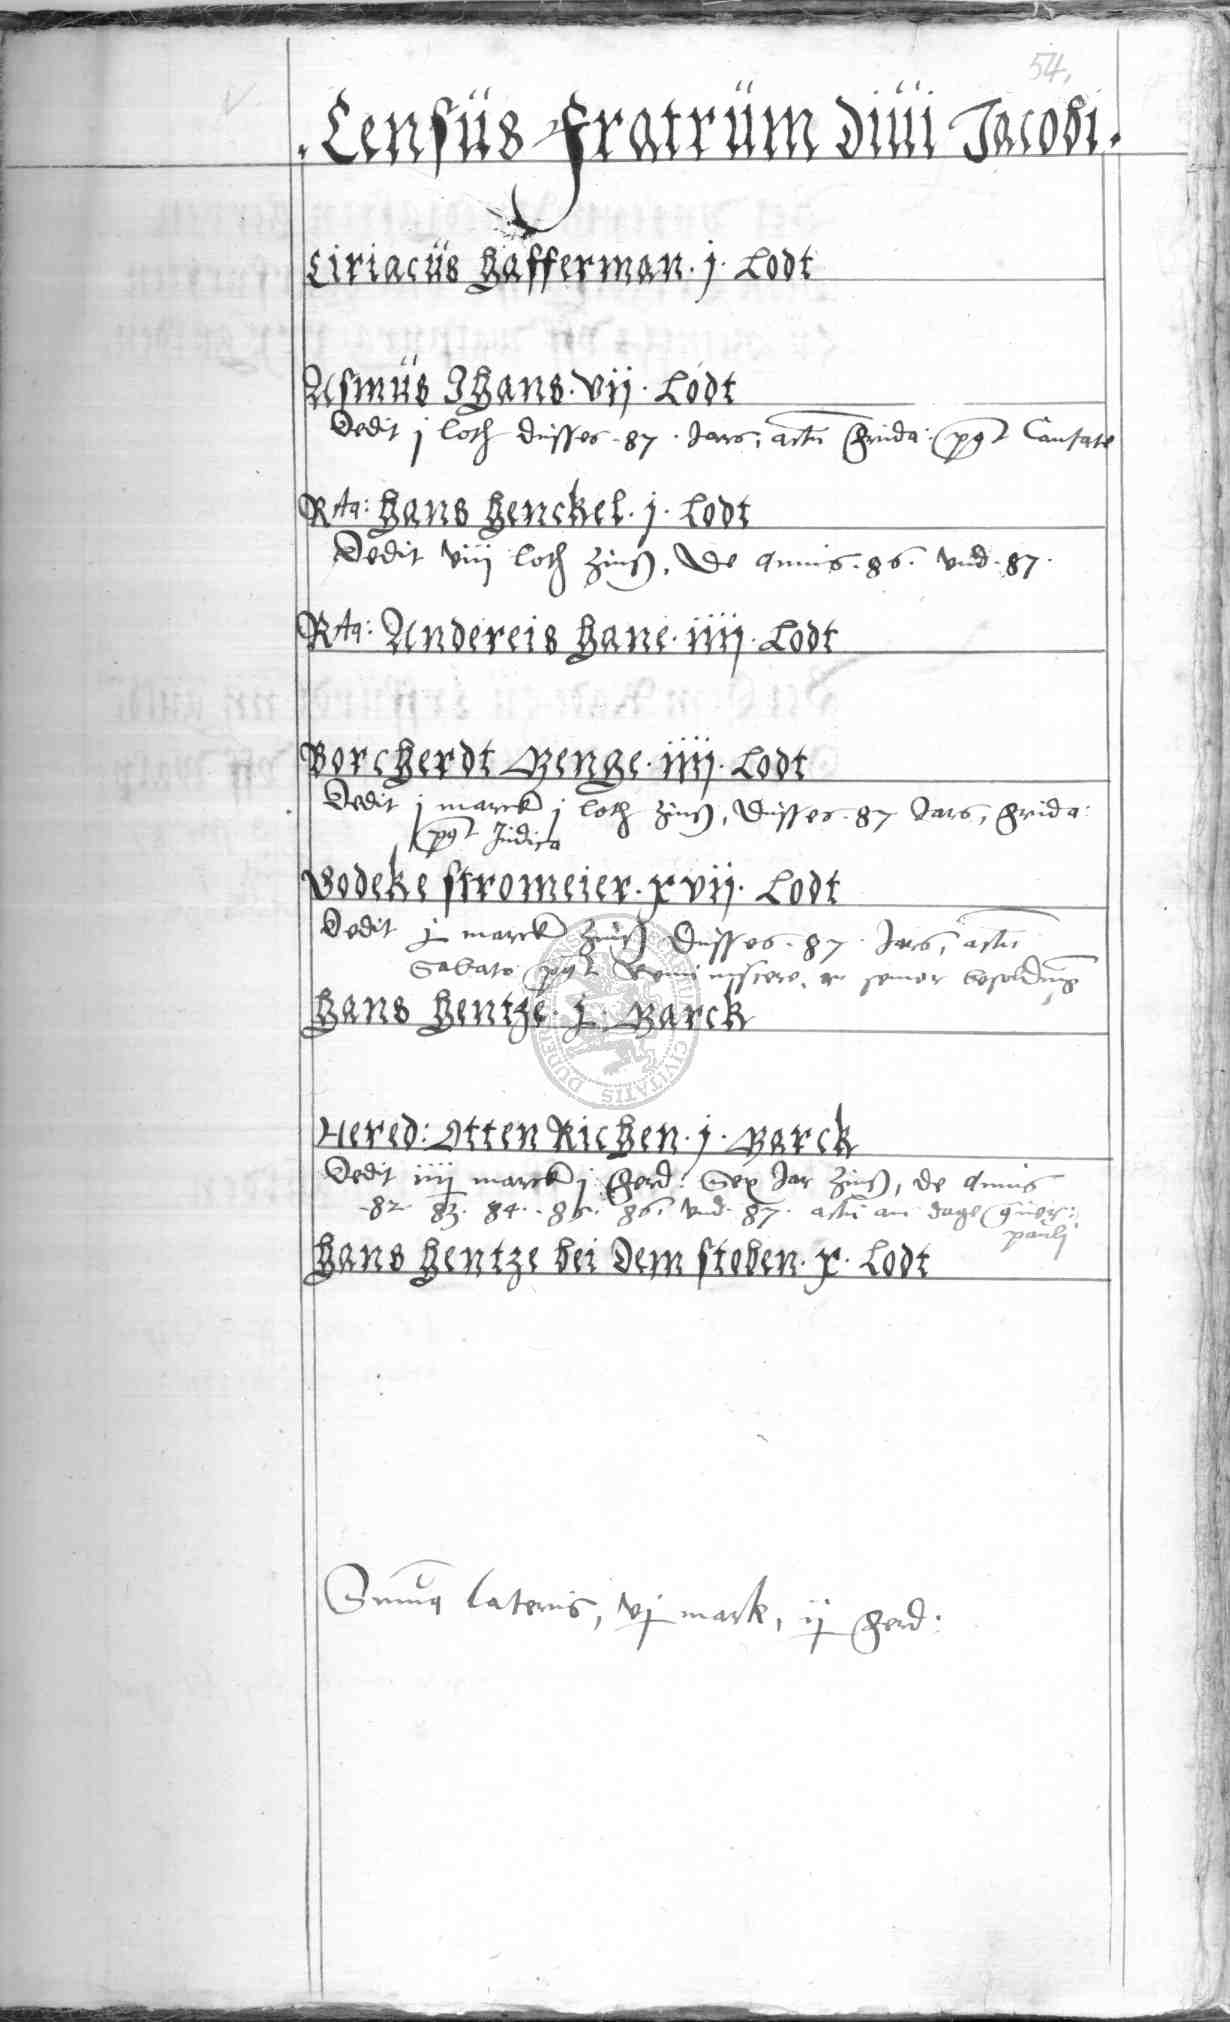 54.
. Census Fratrum diui Jacobi .
Ciriacus Hafferman . j . Lodt
Asmus Ihans . vij . Lodt
Dedit j loth dusses . 87 . Jars, actu frida: post Cantate
Rta: Hans Henckel . j . Lodt
Dedit viij loth Zinß, De Annis . 86 . vnd . 87 .
Rta: Andereis Hane . iiij . Lodt
Borcherdt Menge . iiij . Lodt
Dedit j marck j loth Zinß, Dusses . 87 Jars, Frida:
post Judica
Bodeke Stromeier . xvij . Lodt
Dedit j marck Zinß Dusses . 87 . Jars, actu
Sabato post Reminiscere, in seiner besoldung
Hans Hentze . j . Marck
Hered: Otten Richen . j . Marck
Dedit iiij marck j ferd: Sex Jar Zinß, de Annis
. 82 . 83 . 84 . 85 . 86 . vnd . 87 . actu am dage
pauli
Hans Hentze bei Dem Stoben . x . Lodt
Suma lateris, vj mark, ij ferd:
CIVITATIS DUDER